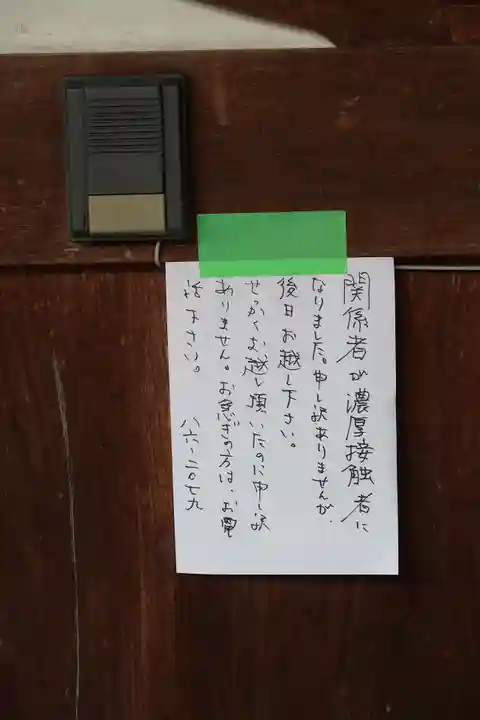 関係者が濃厚接触者に
なりました。申し訳ありませんが、
後日お越し下さい。
せっかくお越し頂いたのに申し訳
ありません。お急ぎの方は、お電
話下さい。 八六-二〇七九